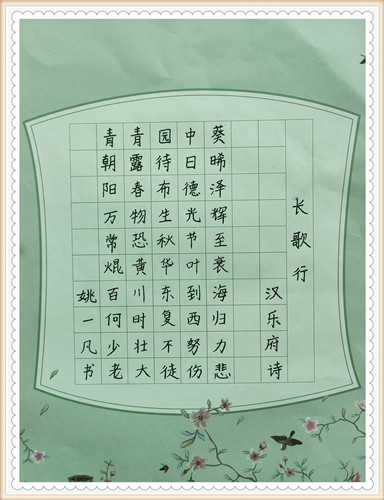 长歌行
汉乐府诗
青青园中葵
朝露待日晞
阳春布德泽
万物生光辉
常恐秋节至
焜黄华叶衰
百川东到海
何时复西归
少壮不努力
老大徒伤悲
姚一凡书